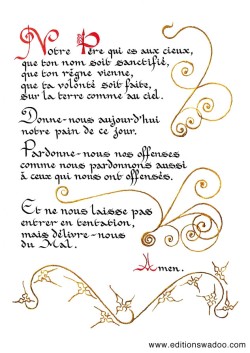 Notre Père qui es aux cieux,
que ton nom soit sanctifié,
que ton règne vienne,
que ta volonté soit faite,
sur la terre comme au ciel.
Donne-nous aujourd'hui
notre pain de ce jour.
Pardonne-nous nos offenses
comme nous pardonnons aussi
à ceux qui nous ont offensés.
Et ne nous laisse pas
entrer en tentation,
mais délivre-nous
du Mal.
Amen.
www.editionswadoo.com